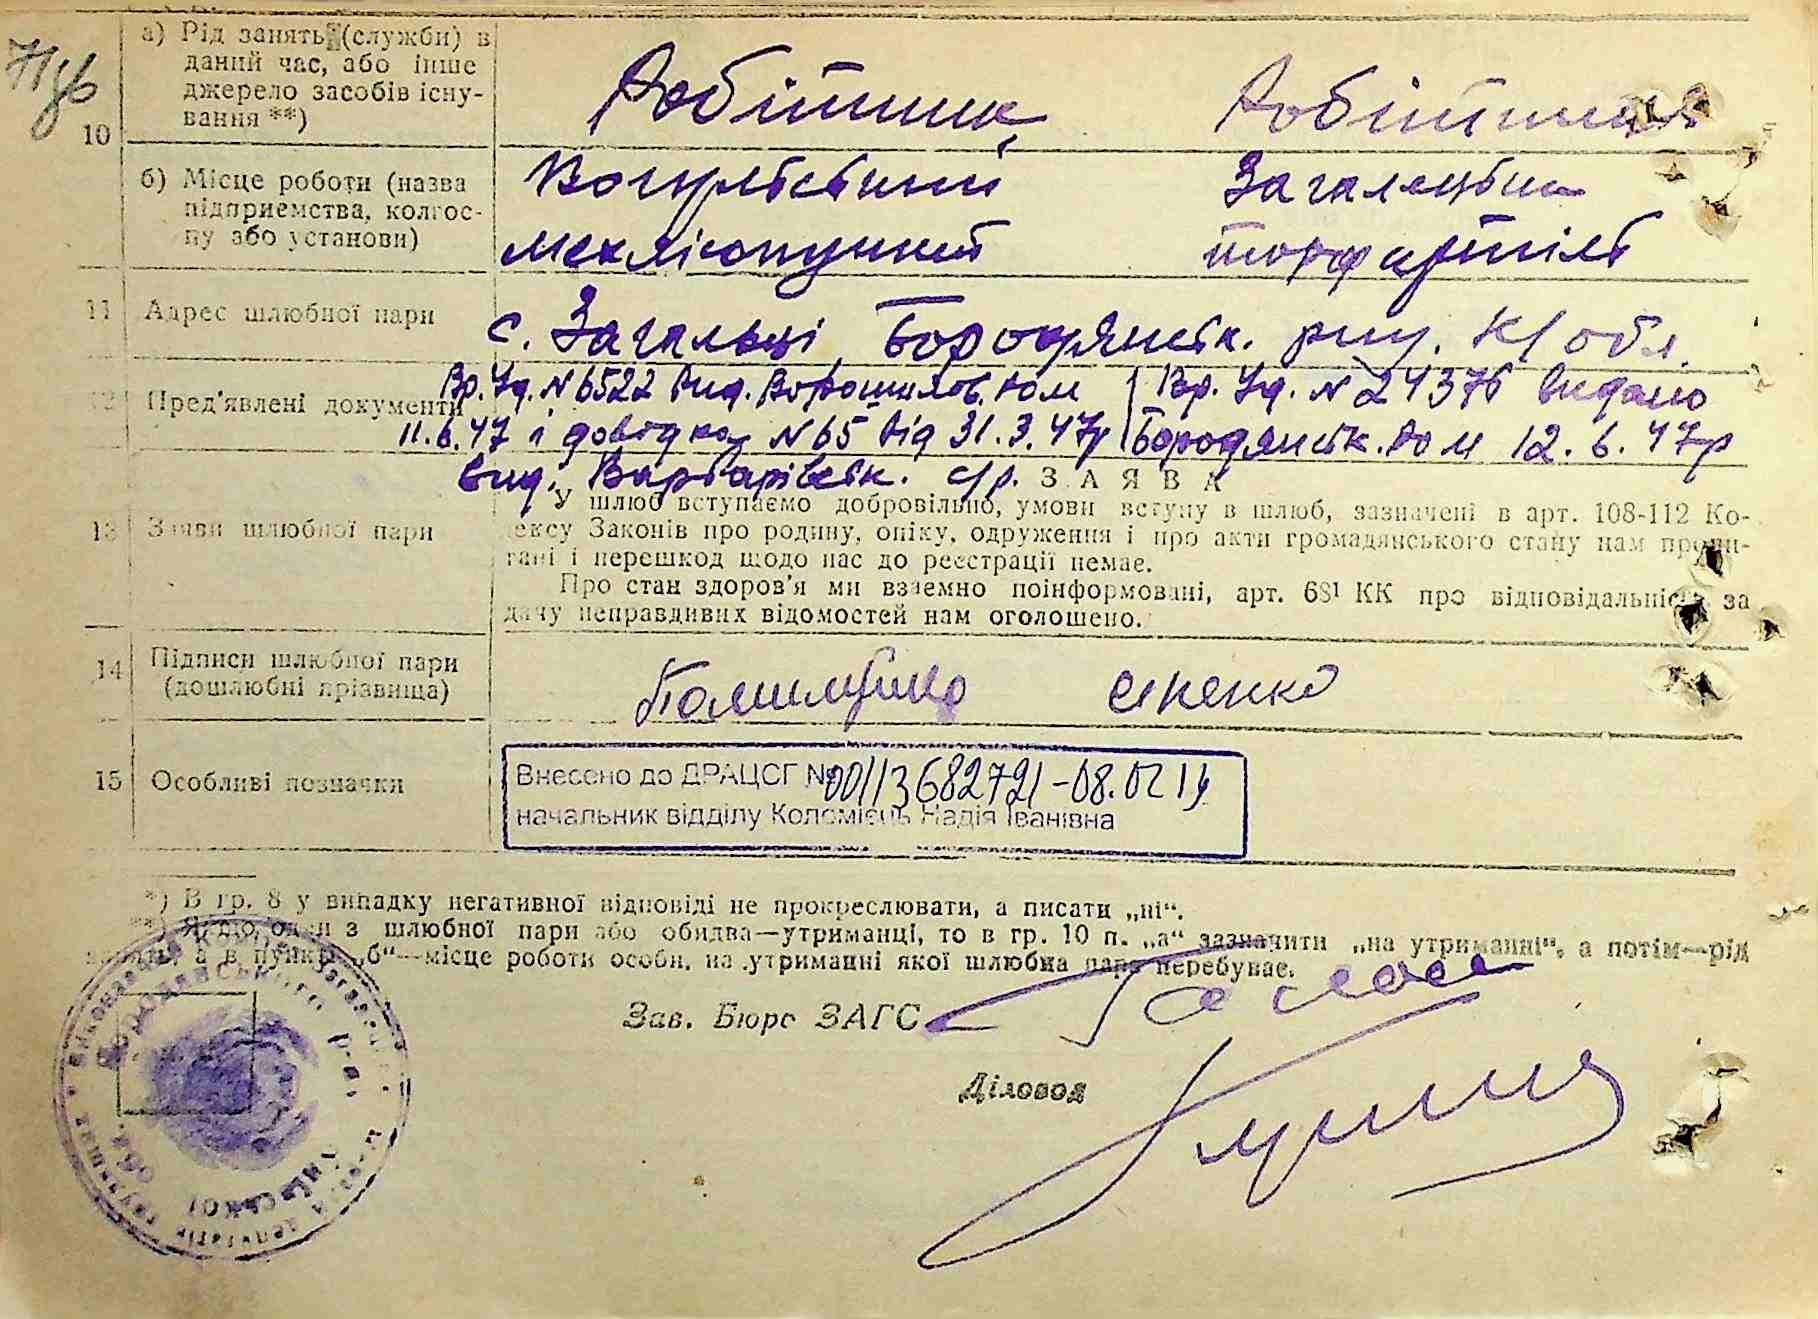 а) Рід занять (служби) в
даний час, або інше
джерело засобів існу-
вання **)
10
Робітник
Робітниця
б) Місце роботи (назва
підприємства, колгос-
пу або установи)
мехлісопункт
Загалецька
торфартіль
11 Адрес шлюбної пари
с. Загальці Бородянськ. рну. К/обл.
12 Пред'явлені документи
Вр. Уд. № 6522 Вид. Ворошилов. ЮМ
11.6.47 і довідка № 65 від 31.3.47р
вид. Варварівськ. с/р.
Вр. Уд. № 24376 видано
Бородянськ. РОМ 12.6.47р
13 Заяви шлюбної пари
ЗАЯВА
У шлюб вступаємо добровільно, умови вступу в шлюб, зазначені в арт. 108-112 Ко-
дексу Законів про родину, опіку, одруження і про акти громадянського стану нам прочи-
тані і перешкод щодо нас до реєстрації немає.
Про стан здоров'я ми взаємно поінформовані, арт. 68¹ КК про відповідальність за
дачу неправдивих відомостей нам оголошено.
14 Підписи шлюбної пари
(дошлюбні прізвища)
15 Особливі позначки
Внесено до ДРАЦСГ № 00113682721-08.02.14
начальник відділу Коломієць Надія Іванівна
*) В гр. 8 у випадку негативної відповіді не прокреслювати, а писати „ні“.
**) Якщо один з шлюбної пари або обидва—утриманці, то в гр. 10 п. „а“ зазначити „на утриманні“, а потім—рід
занять, а в пункті „б“—місце роботи особи, на утриманні якої шлюбна пара перебуває.
Зав. Бюро ЗАГС
Діловод